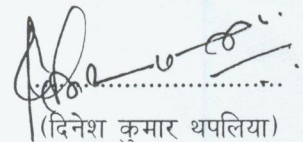 (दिनेश कुमार थपलिया)